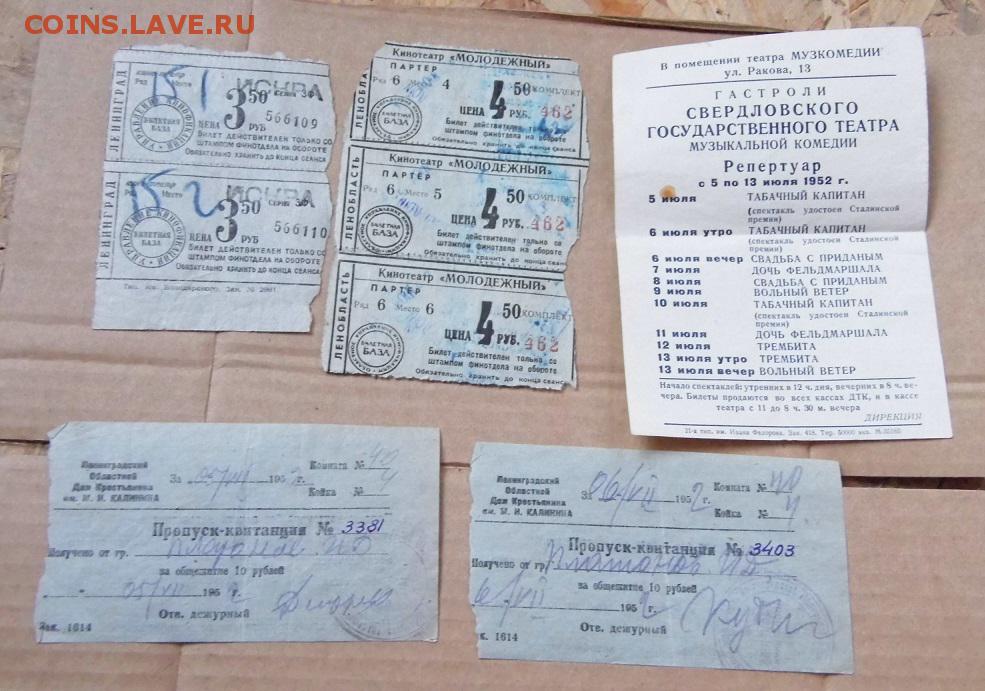 COINS.LAVE.RU
ЛЕНИНГРАД
УПРАВЛЕНИЕ КИНОФИКАЦИИ
БИЛЕТНАЯ БАЗА
Ряд Место
15 1
ЦЕНА 3 50 РУБ
СЕРИЯ ЗФ
566109
БИЛЕТ ДЕЙСТВИТЕЛЕН ТОЛЬКО СО
ШТАМПОМ ФИНОТДЕЛА НА ОБОРОТЕ
Обязательно хранить до конца сеанса
ЛЕНИНГРАД
УПРАВЛЕНИЕ КИНОФИКАЦИИ
БИЛЕТНАЯ БАЗА
Место
15 2
ЦЕНА 3 50 РУБ
СЕРИЯ ЗФ
566110
БИЛЕТ ДЕЙСТВИТЕЛЕН ТОЛЬКО СО
ШТАМПОМ ФИНОТДЕЛА НА ОБОРОТЕ
Обязательно хранить до конца сеанса
Тип. им. Володарского. Зак. №
ЛЕНОБЛАСТЬ
Кинотеатр «МОЛОДЕЖНЫЙ»
ПАРТЕР
Ряд 6 4
БИЛЕТНАЯ БАЗА
ЦЕНА 4 РУБ. 50 КОМПЛЕКТ
462
Билет действителен только со
штампом финотдела на обороте
Обязательно хранить до конца сеанса
ЛЕНОБЛАСТЬ
Кинотеатр «МОЛОДЕЖНЫЙ»
ПАРТЕР
Ряд 6 Место 5
БИЛЕТНАЯ БАЗА
ЦЕНА 4 РУБ. 50 КОМПЛЕКТ
462
Билет действителен только со
штампом финотдела на обороте
Обязательно хранить до конца сеанса
ЛЕНОБЛАСТЬ
Кинотеатр «МОЛОДЕЖНЫЙ»
ПАРТЕР
Ряд 6 Место 6
БИЛЕТНАЯ БАЗА
ЦЕНА 4 РУБ. 50 КОМПЛЕКТ
462
Билет действителен только со
штампом финотдела на обороте
Обязательно хранить до конца сеанса
В помещении театра МУЗКОМЕДИИ
ул. Ракова, 13
ГАСТРОЛИ
СВЕРДЛОВСКОГО
ГОСУДАРСТВЕННОГО ТЕАТРА
МУЗЫКАЛЬНОЙ КОМЕДИИ
Репертуар
с 5 по 13 июля 1952 г.
5 июля ТАБАЧНЫЙ КАПИТАН
(спектакль удостоен Сталинской
премии)
6 июля утро ТАБАЧНЫЙ КАПИТАН
(спектакль удостоен Сталинской
премии)
6 июля вечер СВАДЬБА С ПРИДАНЫМ
7 июля ДОЧЬ ФЕЛЬДМАРШАЛА
8 июля СВАДЬБА С ПРИДАНЫМ
9 июля ВОЛЬНЫЙ ВЕТЕР
10 июля ТАБАЧНЫЙ КАПИТАН
(спектакль удостоен Сталинской
премии)
11 июля ДОЧЬ ФЕЛЬДМАРШАЛА
12 июля ТРЕМБИТА
13 июля утро ТРЕМБИТА
13 июля вечер ВОЛЬНЫЙ ВЕТЕР
Начало спектаклей: утренних в 12 ч. дня, вечерних в 8 ч. ве-
чера. Билеты продаются во всех кассах ДТК, и в кассе
театра с 11 до 8 ч. 30 м. вечера
ДИРЕКЦИЯ
21-я тип. им. Ивана Федорова. Зак. 418. Тир. 50000 экз.
Ленинградский
Областной
Дом Крестьянина
им. М. И. КАЛИНИНА
За 05/VII 1952 г.
Комната № 40
Койка № 4
Пропуск-квитанция № 3381
Получено от гр.
за общежитие 10 рублей
05/VII 1952
Отв. дежурный
Зак. 1614
Ленинградский
Областной
Дом Крестьянина
им. М. И. КАЛИНИНА
За 06/VII 1952 г.
Комната № 40
Койка № 4
Пропуск-квитанция № 3403
Получено от гр.
за общежитие 10 рублей
6/VII 1952 г.
Отв. дежурный
к. 1614